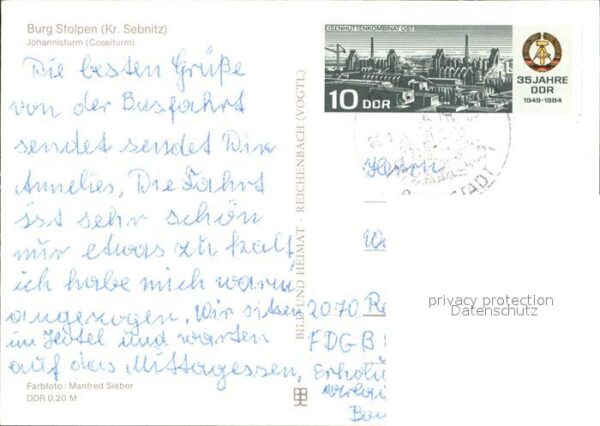 Burg Stolpen (Kr. Sebnitz)
Johannisturm (Coselturm)
Die besten Grüße
von der Busfahrt
sendet sendet Dir
Annelies, Die Fahrt
ist sehr schön
nur etwas zu kalt,
ich habe mich warm
angezogen. Wir sitzen
im Hotel und warten
auf das Mittagessen,
Farbfoto: Manfred Sieber
DDR 0,20 M
BILD UND HEIMAT · REICHENBACH (VOGTL.)
EISENHÜTTENKOMBINAT OST
10 DDR
35 JAHRE
DDR
1949-1984
Herrn
2070 Rö
FDGB
privacy protection
Datenschutz